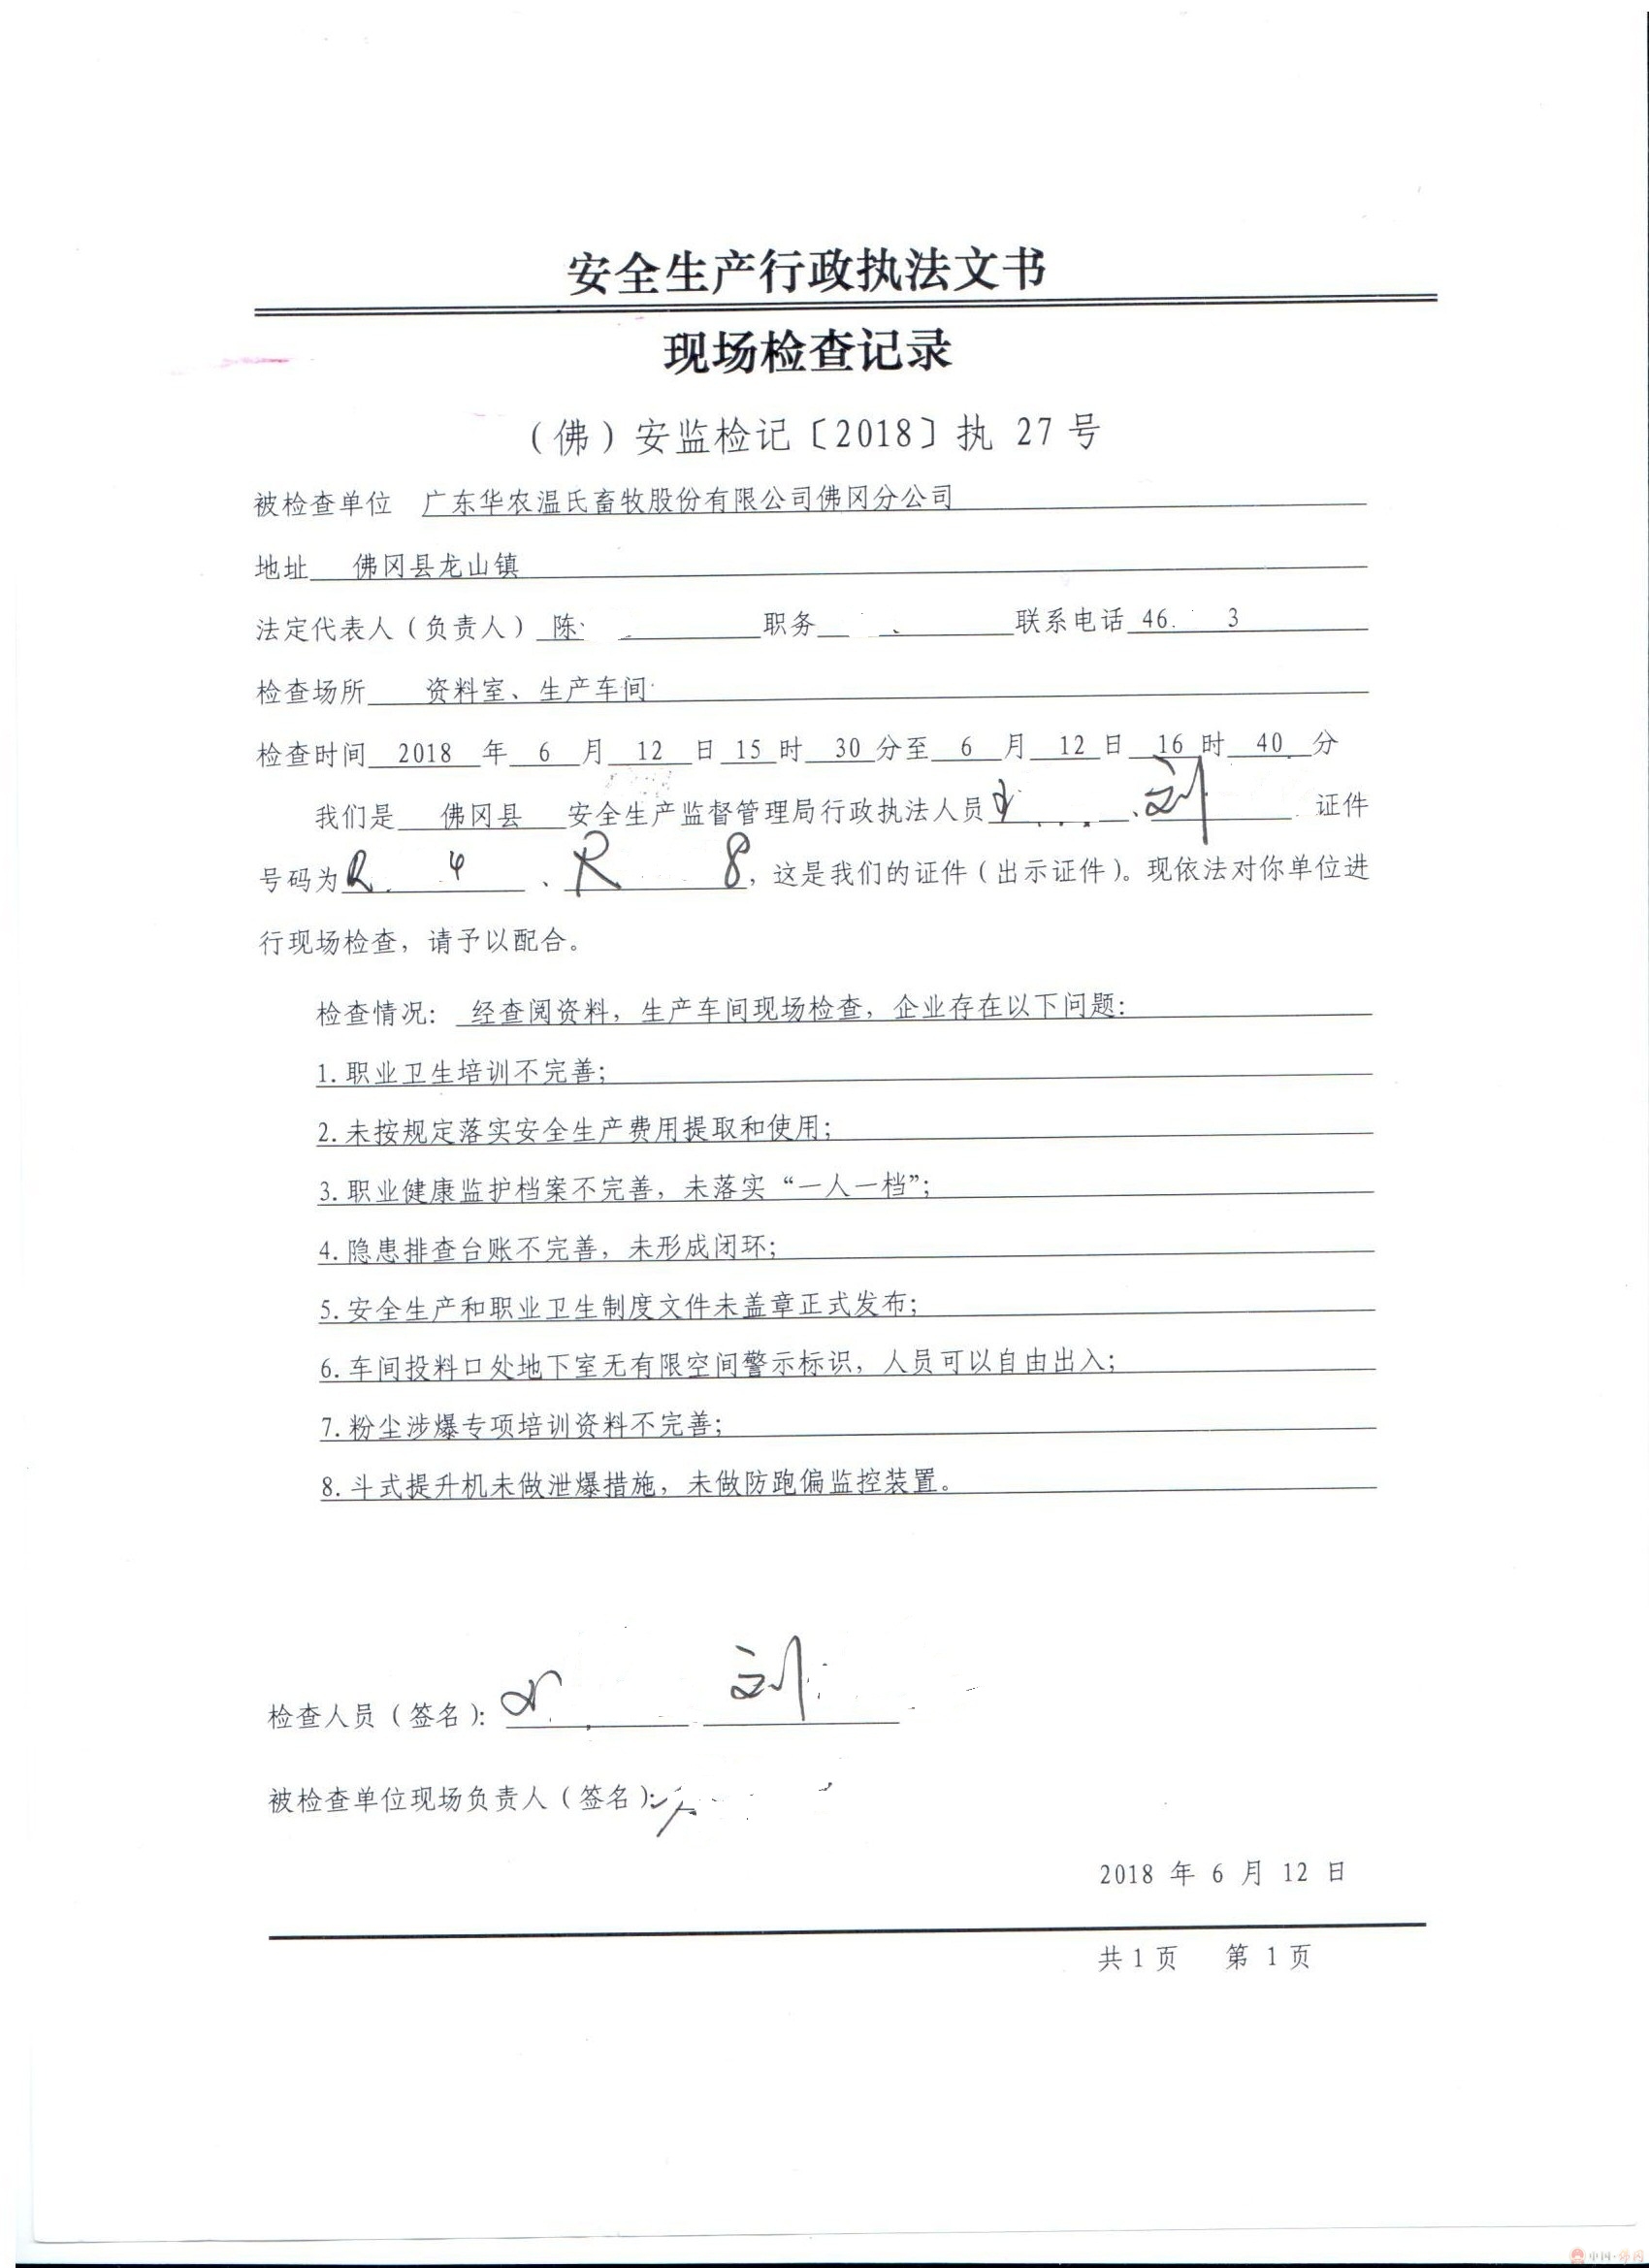 安全生产行政执法文书
现场检查记录
（佛）安监检记〔2018〕执 27 号
被检查单位 广东华农温氏畜牧股份有限公司佛冈分公司
地址 佛冈县龙山镇
法定代表人（负责人） 陈 职务 联系电话 46. 3
检查场所 资料室、生产车间
检查时间 2018 年 6 月 12 日 15 时 30 分至 6 月 12 日 16 时 40 分
我们是 佛冈县 安全生产监督管理局行政执法人员 、刘 证件
号码为 R 4 、 R 8，这是我们的证件（出示证件）。现依法对你单位进
行现场检查，请予以配合。
检查情况： 经查阅资料，生产车间现场检查，企业存在以下问题：
1.职业卫生培训不完善；
2.未按规定落实安全生产费用提取和使用；
3.职业健康监护档案不完善，未落实“一人一档”；
4.隐患排查台账不完善，未形成闭环；
5.安全生产和职业卫生制度文件未盖章正式发布；
6.车间投料口处地下室无有限空间警示标识，人员可以自由出入；
7.粉尘涉爆专项培训资料不完善；
8.斗式提升机未做泄爆措施，未做防跑偏监控装置。
检查人员（签名）： 刘
被检查单位现场负责人（签名）：
2018 年 6 月 12 日
共 1 页 第 1 页
中国·佛冈